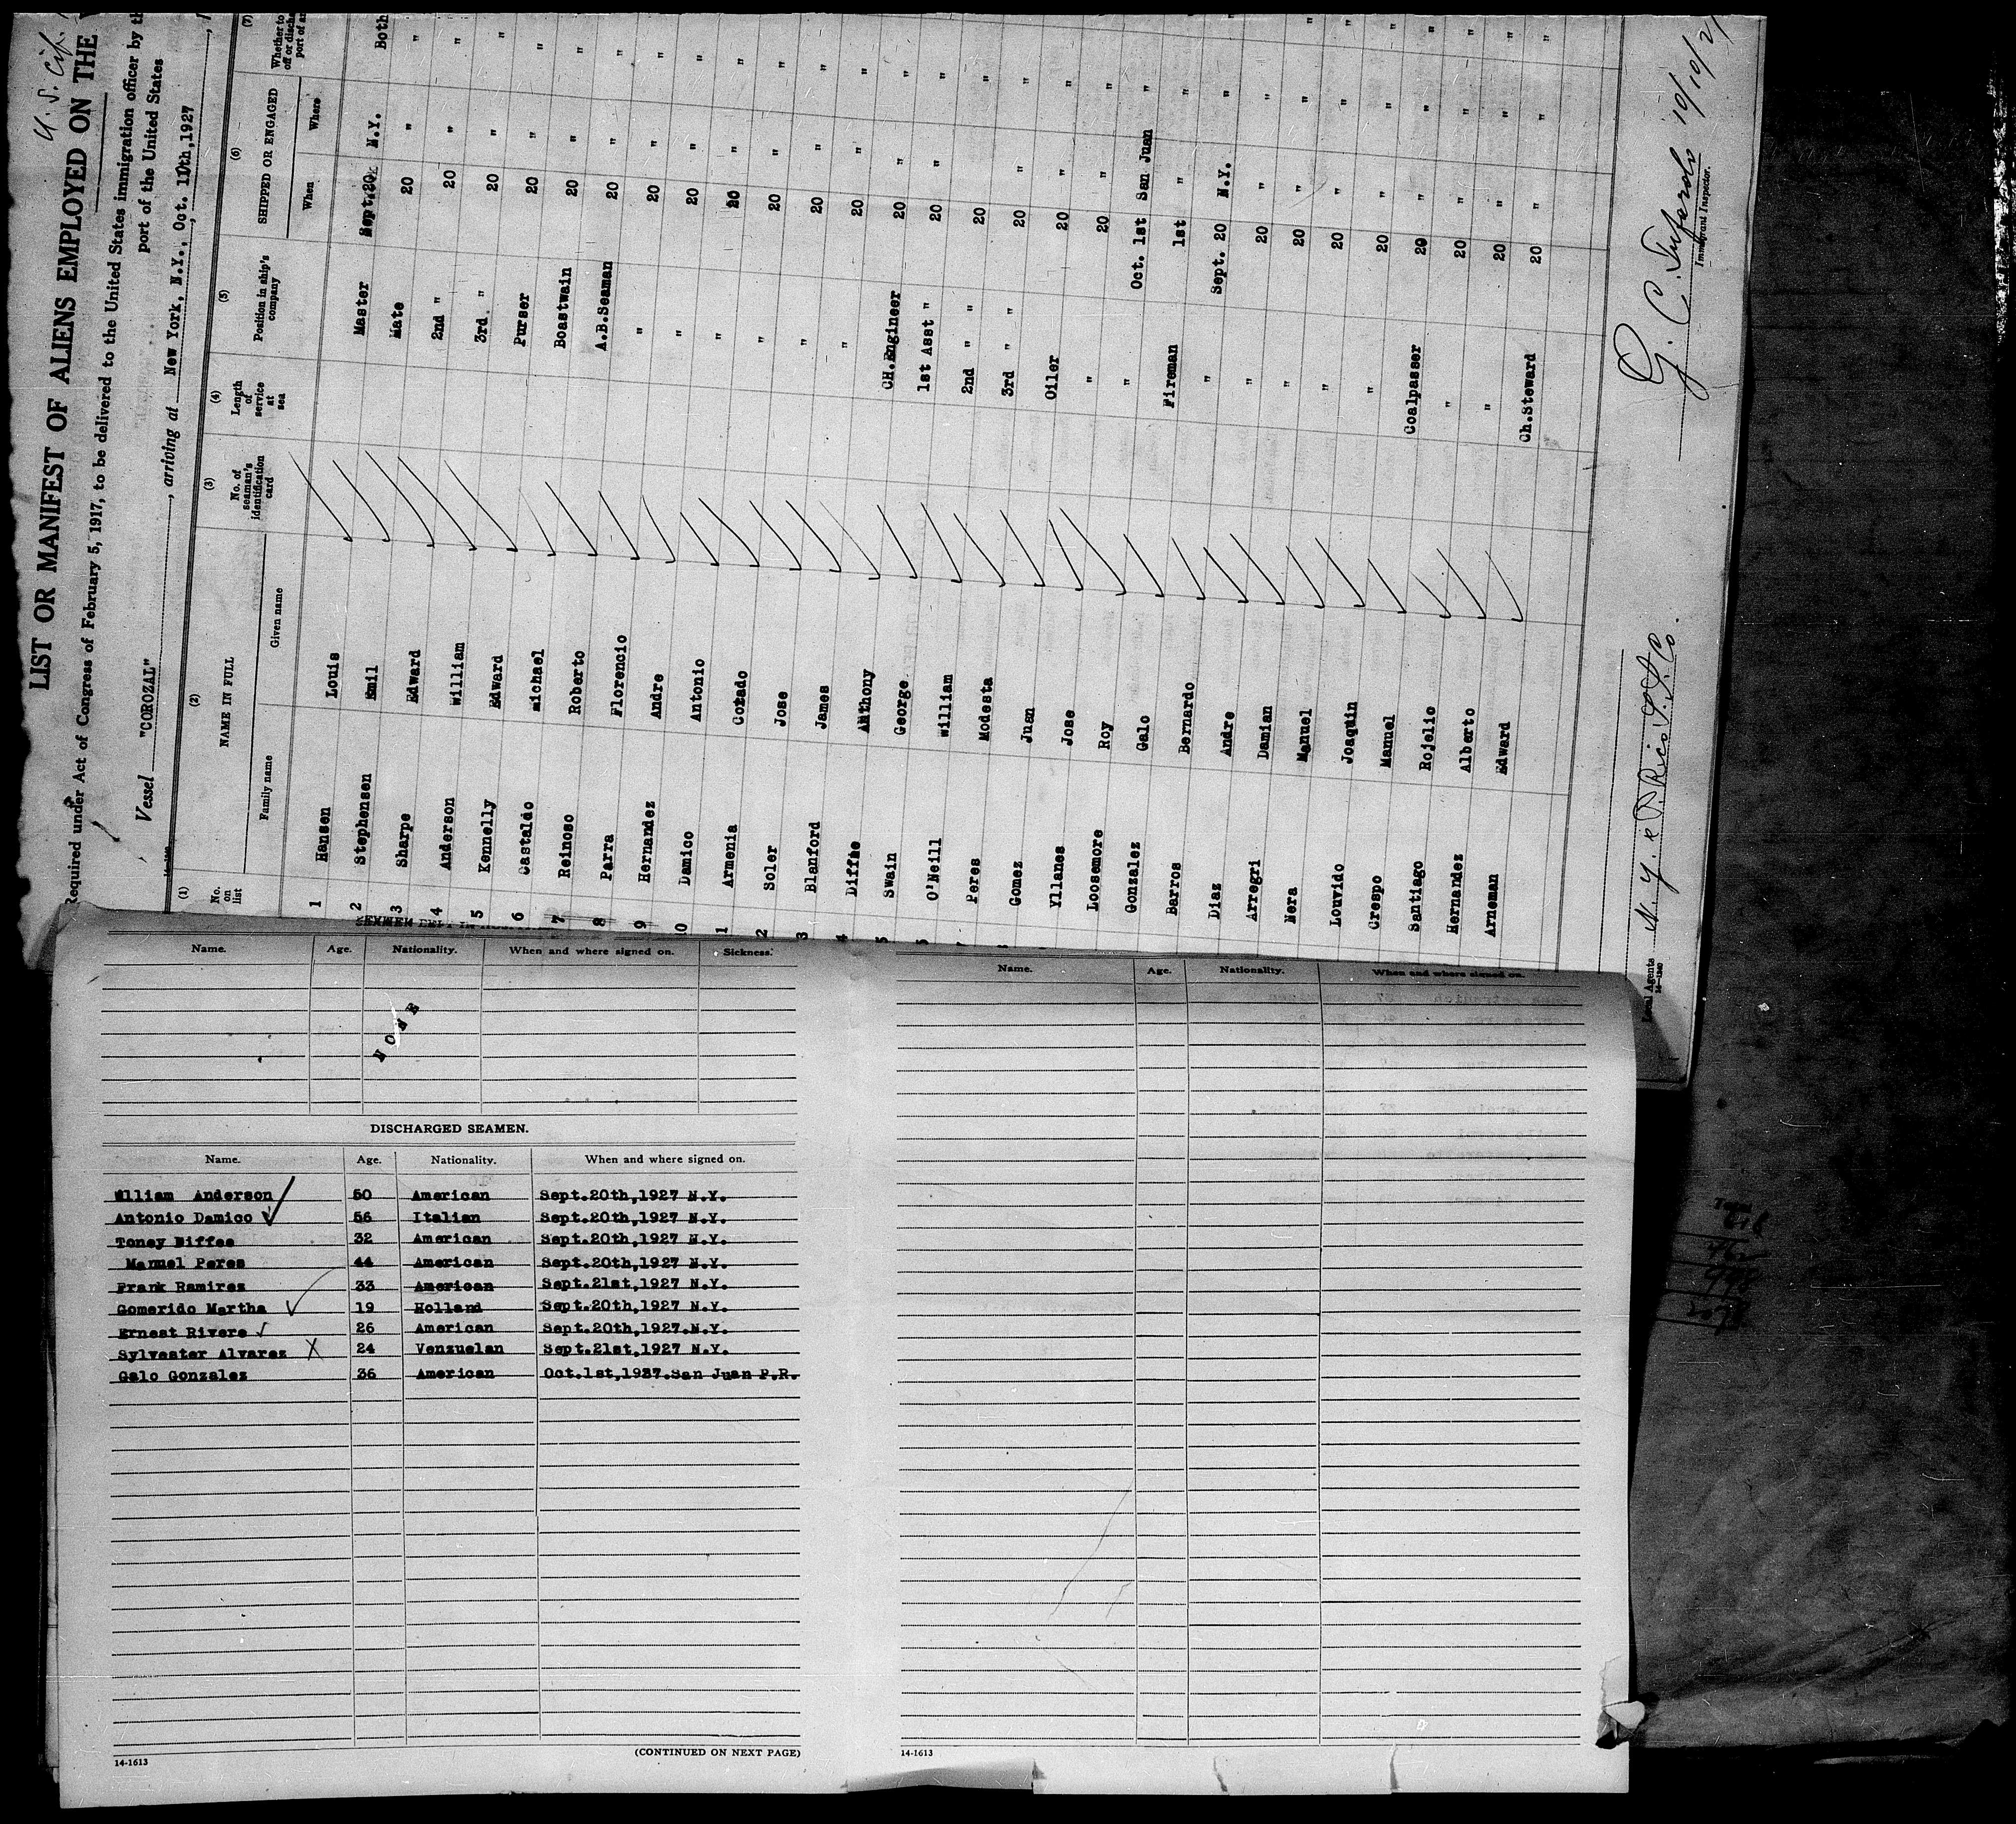 U. S. Cit.
LIST OR MANIFEST OF ALIENS EMPLOYED ON THE
Required under Act of Congress of February 5, 1917, to be delivered to the United States immigration officer by th
port of the United States
Vessel "COROZAL", arriving at New York, N.Y., Oct. 11th, 1927
(1) (2) (3) (4) (5) (6) (7)
No. on list NAME IN FULL No. of seaman's identification card Length of service at sea Position in ship's company SHIPPED OR ENGAGED Whether to
Family name Given name When Where
1 Hansen Louis Master Sept. 20 N.Y. Both
2 Stephensen Emil Mate 20 " "
3 Sharpe Edward 2nd " 20 " "
4 Anderson William 3rd. " 20 " "
5 Kennelly Edward Purser 20 " "
6 Castaldo Michael Boastwain 20 " "
7 Reinoso Roberto A.B.Seaman 20 " "
8 Parra Florencio " 20 " "
9 Hernandez Andre " 20 " "
0 Damico Antonio " 20 " "
1 Armenia Cozado " 20 " "
2 Soler Jose " 20 " "
3 Blanford James " 20 " "
4 Diffne Anthony CH.Engineer 20 " "
5 Swain George 1st Asst " 20 " "
O'Neill William 2nd " " 20 "
Peres Modesta 3rd " " 20 " "
Gomez Juan Oiler 20 " "
Yllanes Jose " 20 " "
Loosemore Roy " Oct. 1st San Juan "
Gonzalez Galo Fireman 1st " "
Barros Bernardo " Sept. 20 N.Y. "
Diaz Andre " 20 " "
Arregri Damian " 20 " "
Nera Manuel " 20 " "
Louvido Joaquin " 20 " "
Crespo Manuel Coalpasser 20 " "
Santiago Rojelio " 20 " "
Hernandez Alberto " 20 " "
Arneman Edward Ch.Steward 20 " "
Local Agents N. Y. & P. Rico S. S. Co.
14-1240
Immigrant Inspector.
Name. Age. Nationality. When and where signed on. Sickness.
NONE
DISCHARGED SEAMEN.
Name. Age. Nationality. When and where signed on.
Wlliam Anderson 50 American Sept.20th,1927 N.Y.
Antonio Damico 56 Italian Sept.20th,1927 N.Y.
Toney Diffee 32 American Sept.20th,1927 N.Y.
Manuel Peres 44 American Sept.20th,1927 N.Y.
Frank Ramires 33 American Sept.21st,1927 N.Y.
Gomerido Martha 19 Holland Sept.20th,1927 N.Y.
Ernest Rivere 26 American Sept.20th,1927.N.Y.
Sylvester Alvarez X 24 Venzuelan Sept.21st,1927 N.Y.
Galo Gonzales 36 American Oct.1st,1927.San Juan P.R.
14-1613
(CONTINUED ON NEXT PAGE)
Name. Age. Nationality. When and where signed on.
14-1613